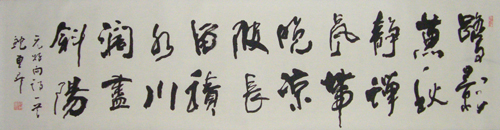 鷺影
兼秋
靜蟬
聲帶
晚涼
陂長
留積
水川
濶盡
斜陽
元好問詩一首